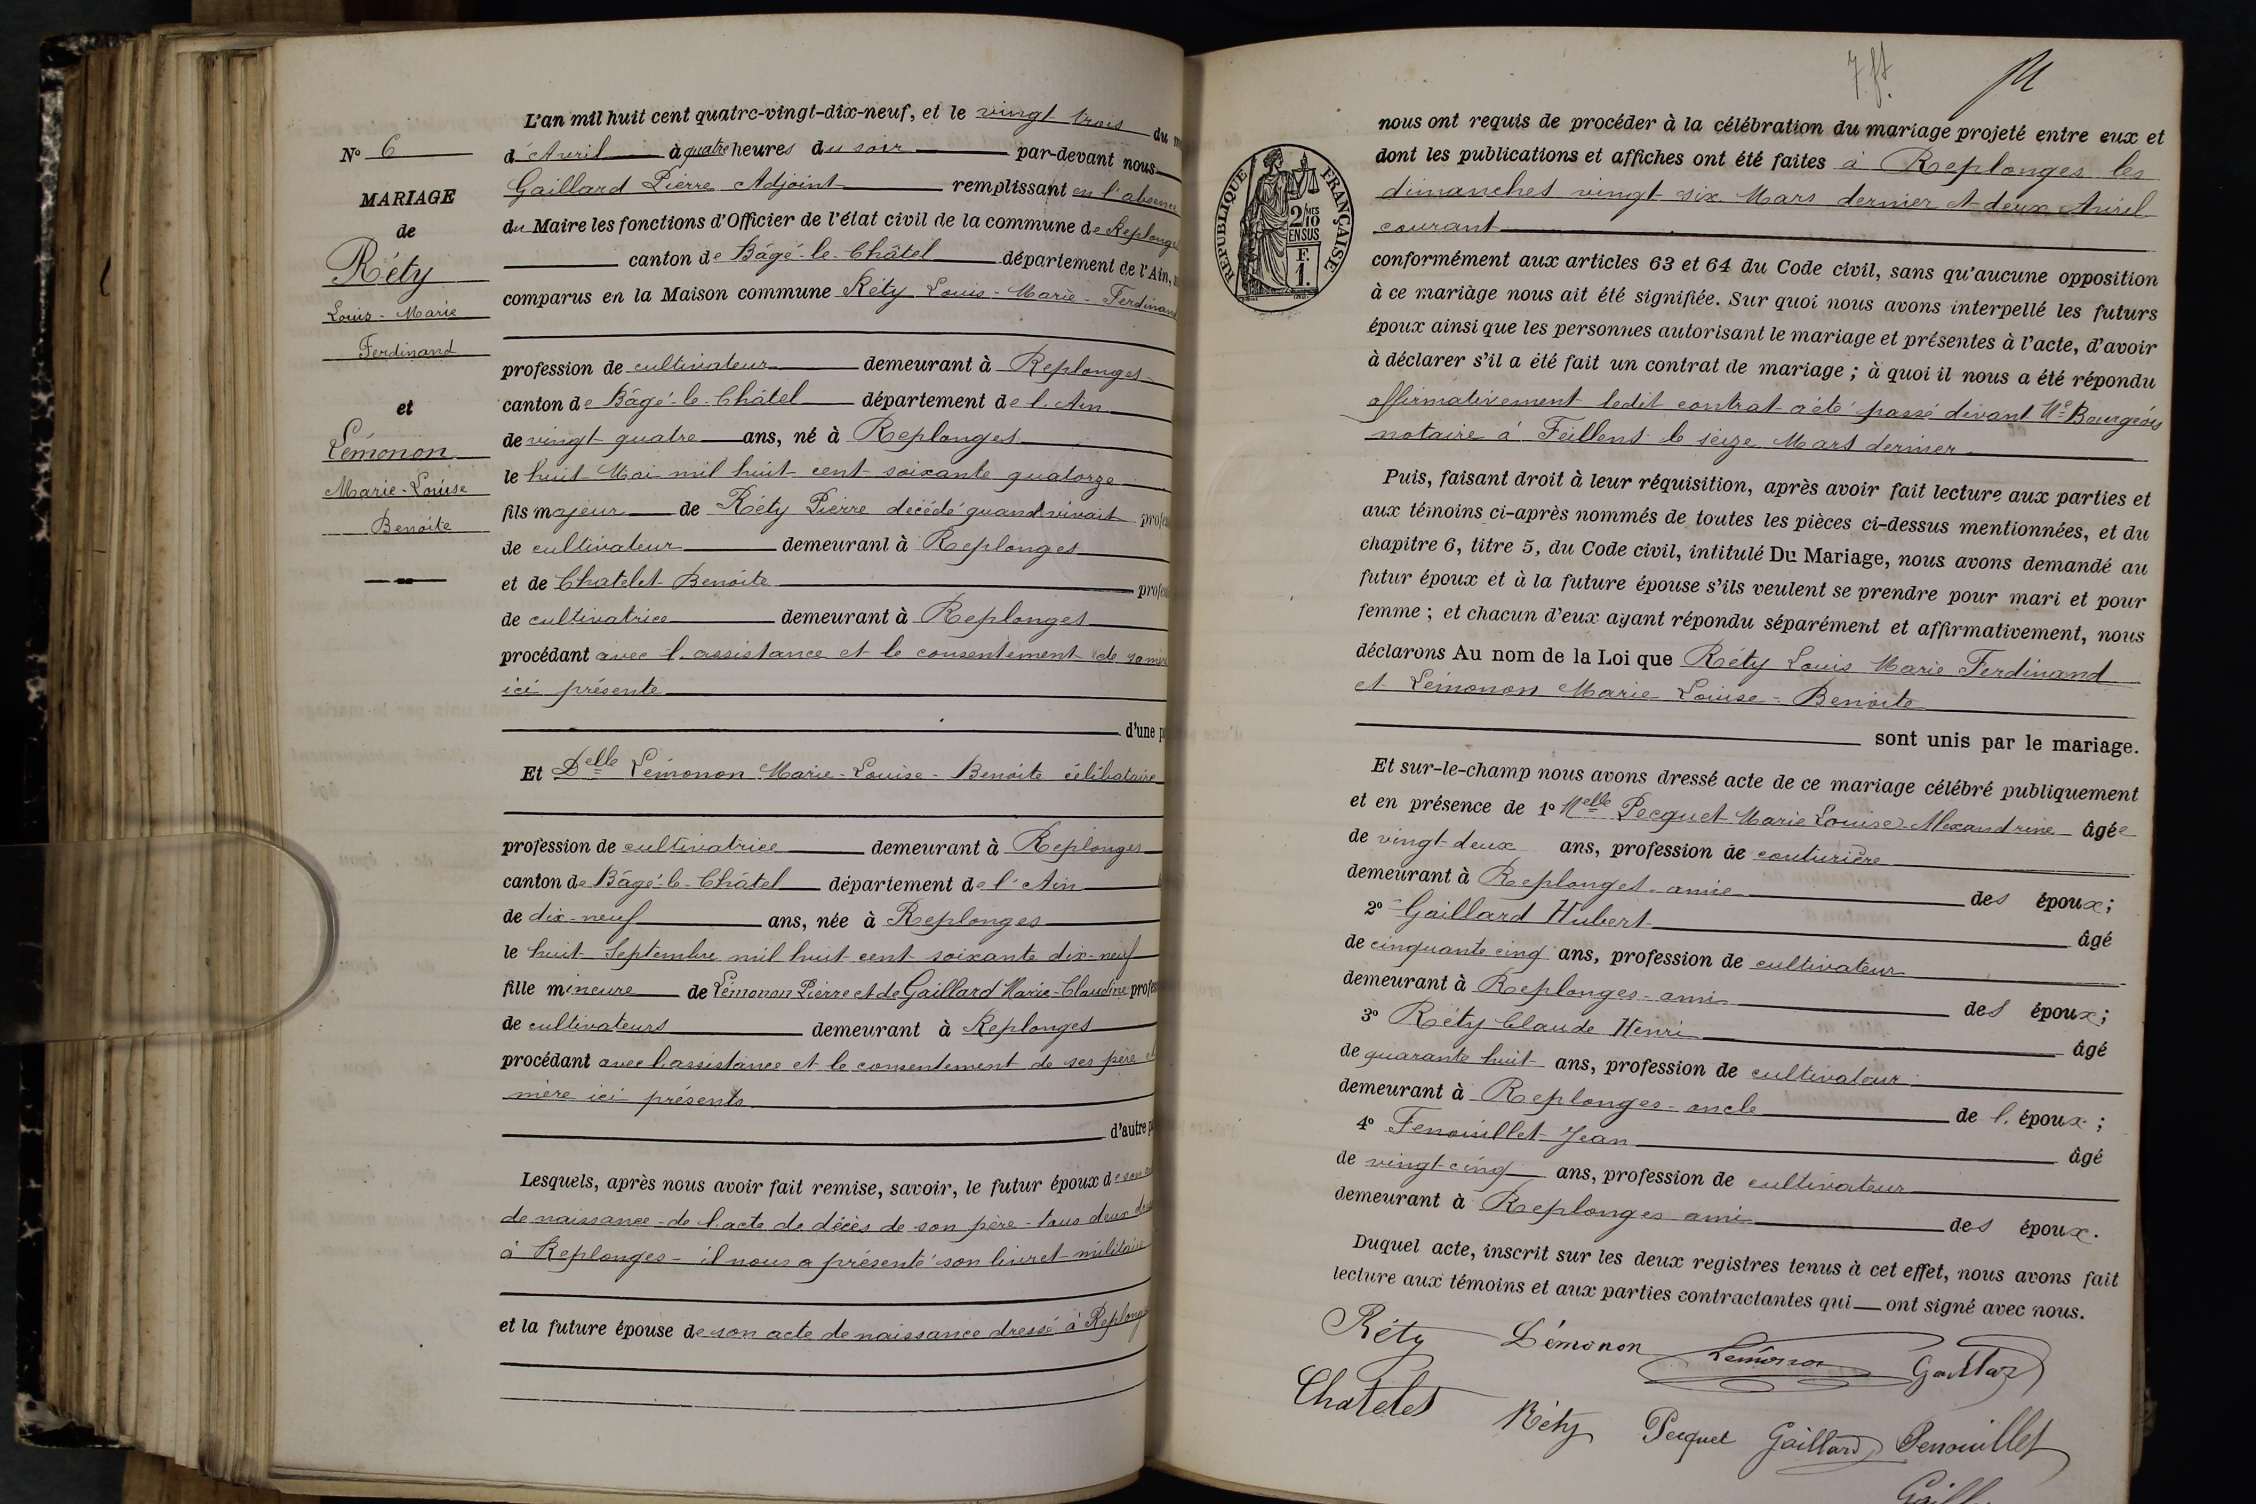 L'an mil huit cent quatre-vingt-dix-neuf, et le vingt trois du
N° 6
d'Avril à quatre heures du soir par-devant nous
Gaillard Pierre Adjoint remplissant en l'absence
MARIAGE
du Maire les fonctions d'Officier de l'état civil de la commune de Replonges
de
canton de Bâgé-le-Châtel département de l'Ain,
Réty
comparus en la Maison commune Réty Louis-Marie-Ferdinand
Louis-Marie
Ferdinand
profession de cultivateur demeurant à Replonges
et
canton de Bâgé-le-Châtel département de l'Ain
Lémonon
de vingt quatre ans, né à Replonges
Marie-Louise
le huit Mai mil huit cent soixante quatorze
Benoite
fils majeur de Réty Pierre décédé quand vivait
de cultivateur demeurant à Replonges
et de Chatelet Benoite
de cultivatrice demeurant à Replonges
procédant avec l'assistance et le consentement de sa mère
ici présente
d'une
Et Delle Lémonon Marie-Louise-Benoite célibataire
profession de cultivatrice demeurant à Replonges
canton de Bâgé-le-Châtel département de l'Ain
de dix-neuf ans, née à Replonges
le huit Septembre mil huit cent soixante dix-neuf
fille mineure de Lémonon Pierre et de Gaillard Marie-Claudine
de cultivateurs demeurant à Replonges
procédant avec l'assistance et le consentement de ses père et
mère ici présents
d'autre
Lesquels, après nous avoir fait remise, savoir, le futur époux de son
de naissance - de l'acte de décès de son père - tous deux
à Replonges - il nous a présenté son livret militaire
et la future épouse de son acte de naissance dressé à Replonges
7. ft
nous ont requis de procéder à la célébration du mariage projeté entre eux et
dont les publications et affiches ont été faites à Replonges les
dimanches vingt six Mars dernier et deux Avril
courant
RÉPUBLIQUE FRANÇAISE
2/10MES
EN SUS
F.
1.
conformément aux articles 63 et 64 du Code civil, sans qu'aucune opposition
à ce mariage nous ait été signifiée. Sur quoi nous avons interpellé les futurs
époux ainsi que les personnes autorisant le mariage et présentes à l'acte, d'avoir
à déclarer s'il a été fait un contrat de mariage ; à quoi il nous a été répondu
affirmativement ledit contrat a été passé divant Me Bourgeois
notaire à Feillens le seize Mars dernier
Puis, faisant droit à leur réquisition, après avoir fait lecture aux parties et
aux témoins ci-après nommés de toutes les pièces ci-dessus mentionnées, et du
chapitre 6, titre 5, du Code civil, intitulé Du Mariage, nous avons demandé au
futur époux et à la future épouse s'ils veulent se prendre pour mari et pour
femme ; et chacun d'eux ayant répondu séparément et affirmativement, nous
déclarons Au nom de la Loi que Réty Louis Marie Ferdinand
et Lémonon Marie Louise-Benoite
sont unis par le mariage.
Et sur-le-champ nous avons dressé acte de ce mariage célébré publiquement
et en présence de 1° Melle Pecquet Marie Louise Alexandrine âgée
de vingt-deux ans, profession de couturière
demeurant à Replonges - amie des époux ;
2° Gaillard Hubert âgé
de cinquante cinq ans, profession de cultivateur
demeurant à Replonges - ami des époux ;
3° Réty Claude Henri âgé
de quarante huit ans, profession de cultivateur
demeurant à Replonges - oncle de l'époux ;
4° Fenouillet Jean âgé
de vingt-cinq ans, profession de cultivateur
demeurant à Replonges ami des époux.
Duquel acte, inscrit sur les deux registres tenus à cet effet, nous avons fait
lecture aux témoins et aux parties contractantes qui ont signé avec nous.
Réty Lémonon Lémonon Gaillard
Chatelet Réty Pecquet Gaillard Fenouillet